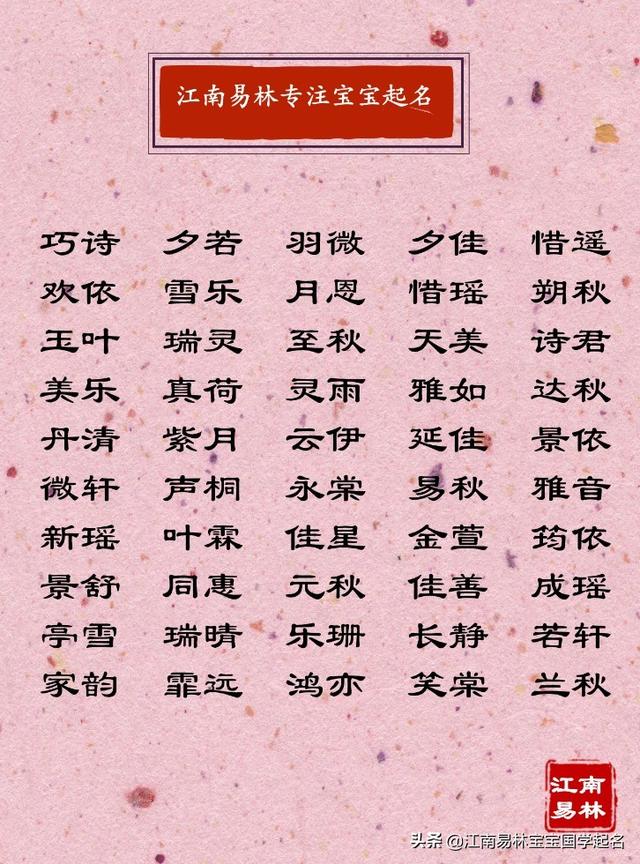 江南易林专注宝宝起名
巧诗 夕若 羽微 夕佳 惜遥
欢依 雪乐 月恩 惜瑶 朔秋
玉叶 瑞灵 至秋 天美 诗君
美乐 真荷 灵雨 雅如 达秋
丹清 紫月 云伊 延佳 景依
微轩 声桐 永棠 易秋 雅音
新瑶 叶霖 佳星 金萱 筠依
景舒 同惠 元秋 佳善 成瑶
亭雪 瑞晴 乐珊 长静 若轩
家韵 霏远 鸿亦 笑棠 兰秋
江南
易林
头条 @江南易林宝宝国学起名